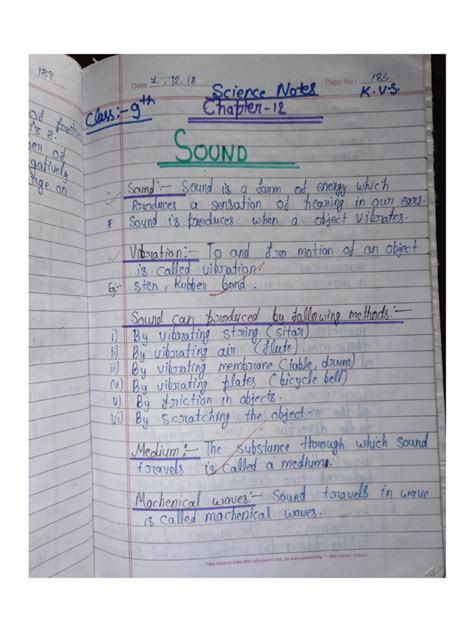 189
Date 7.12.18
Page No.: 183
Science Notes
K.V.S.
Class:- 9th
Chapter-12
SOUND
Sound:- Sound is a form of energy which
Produces a sensation of hearing in our ears.
* Sound is produces when a object vibrates.
Vibration:- To and fro motion of an object
is called vibration.
Eg:- Sten, Rubber bond.
Sound can produced by following methods:-
i) By vibrating string (sitar)
ii) By vibrating air (flute)
iii) By vibrating membrane (table, drum)
iv) By vibrating plates (bicycle bell)
v) By friction in objects.
vi) By scratching the object.
Medium:- The substance thorough which sound
travels is called a medium.
Machenical waves:- Sound travels in wave
is called machenical waves.